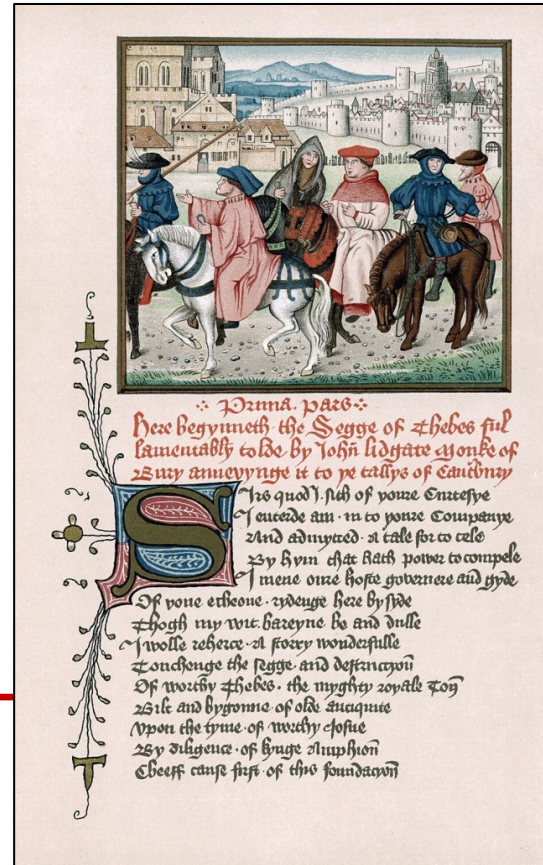 Prima. pars
Here begynneth the Segge of Thebes ful
lamentably tolde by Johñ lidgate Monke of
Bury annievynge it to ye tallys of Caūtbury
Sirs quod I. sith of youre Curtesye
I enterde am. in to youre Companye
And admytted. A tale for to tele
By hym that hath power to compele
I mene oure hoste governere and gyde
Of yone echeone. rydenge here by syde
Thogh my wit. bareyne be and dulle
I wolle reherce. A storry wonderfulle
Touchenge the segge and destruccyoñ
Of worthy Thebes. the myghty royale Toñ
Bilt and bygonne. of olde antiquite
Vpon the tyme. of worthy Josue
By diligence. of kynge Amphioñ
Cheeff cause first. of this foundacyoñ